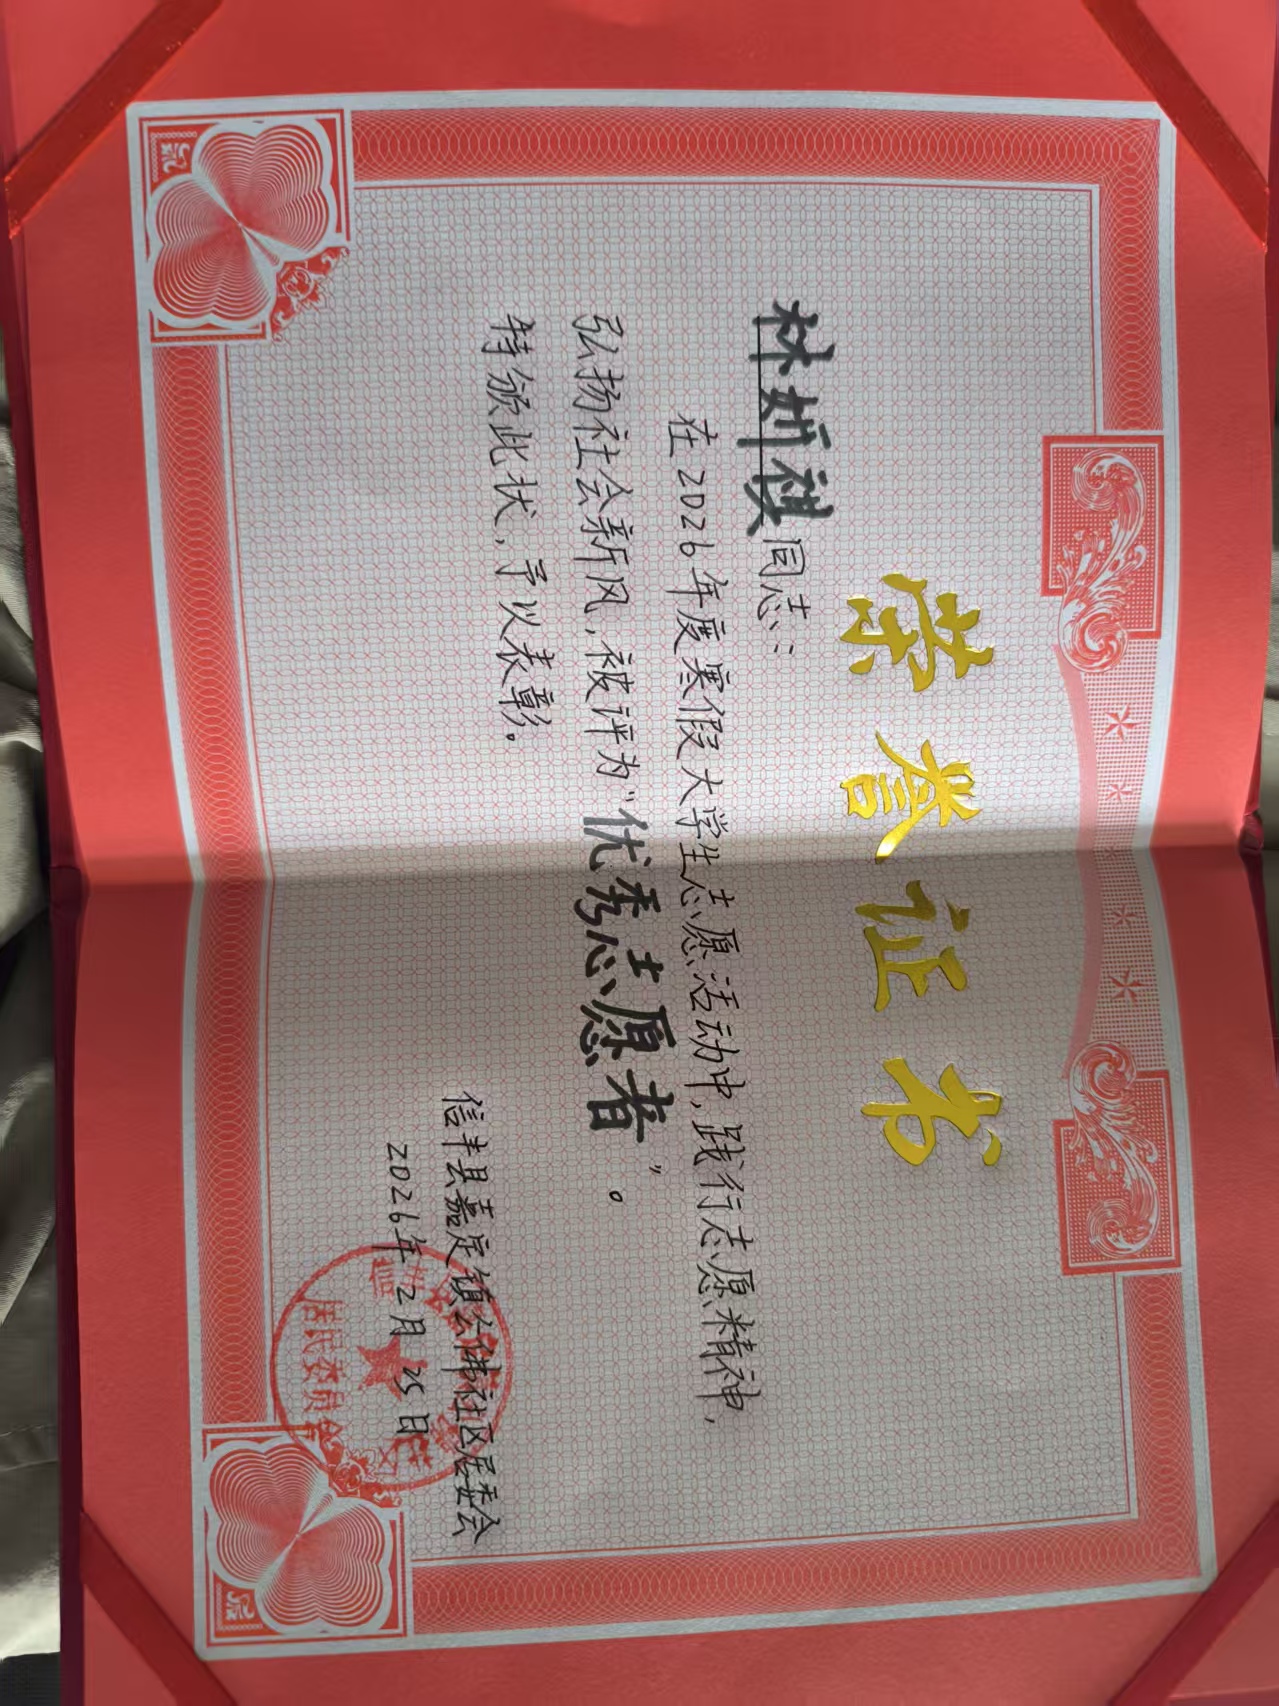 荣誉证书
林妍祺同志：
在2026年度寒假大学生志愿活动中，践行志愿精神，
弘扬社会新风，被评为“优秀志愿者”。
特颁此状，予以表彰。
信丰县嘉定镇公佛社区居委会
2026年2月25日
居民委员会